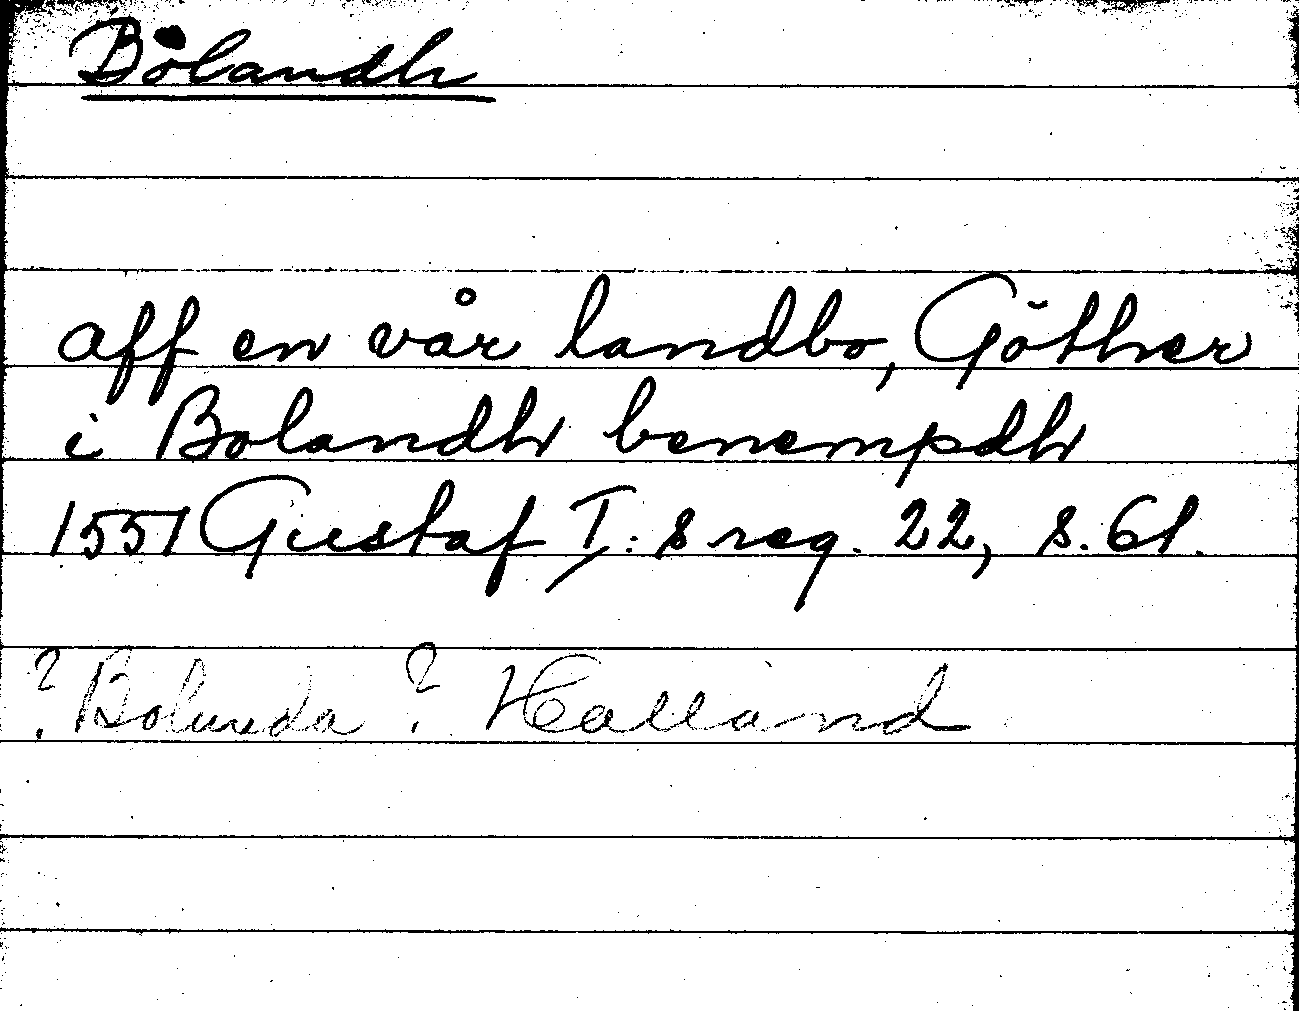 Bolandh
aff en vår landbo, Göther
i Bolandh benempdh
1551 Gustaf I:s reg. 22, s. 61.
? Bolunda ? Halland